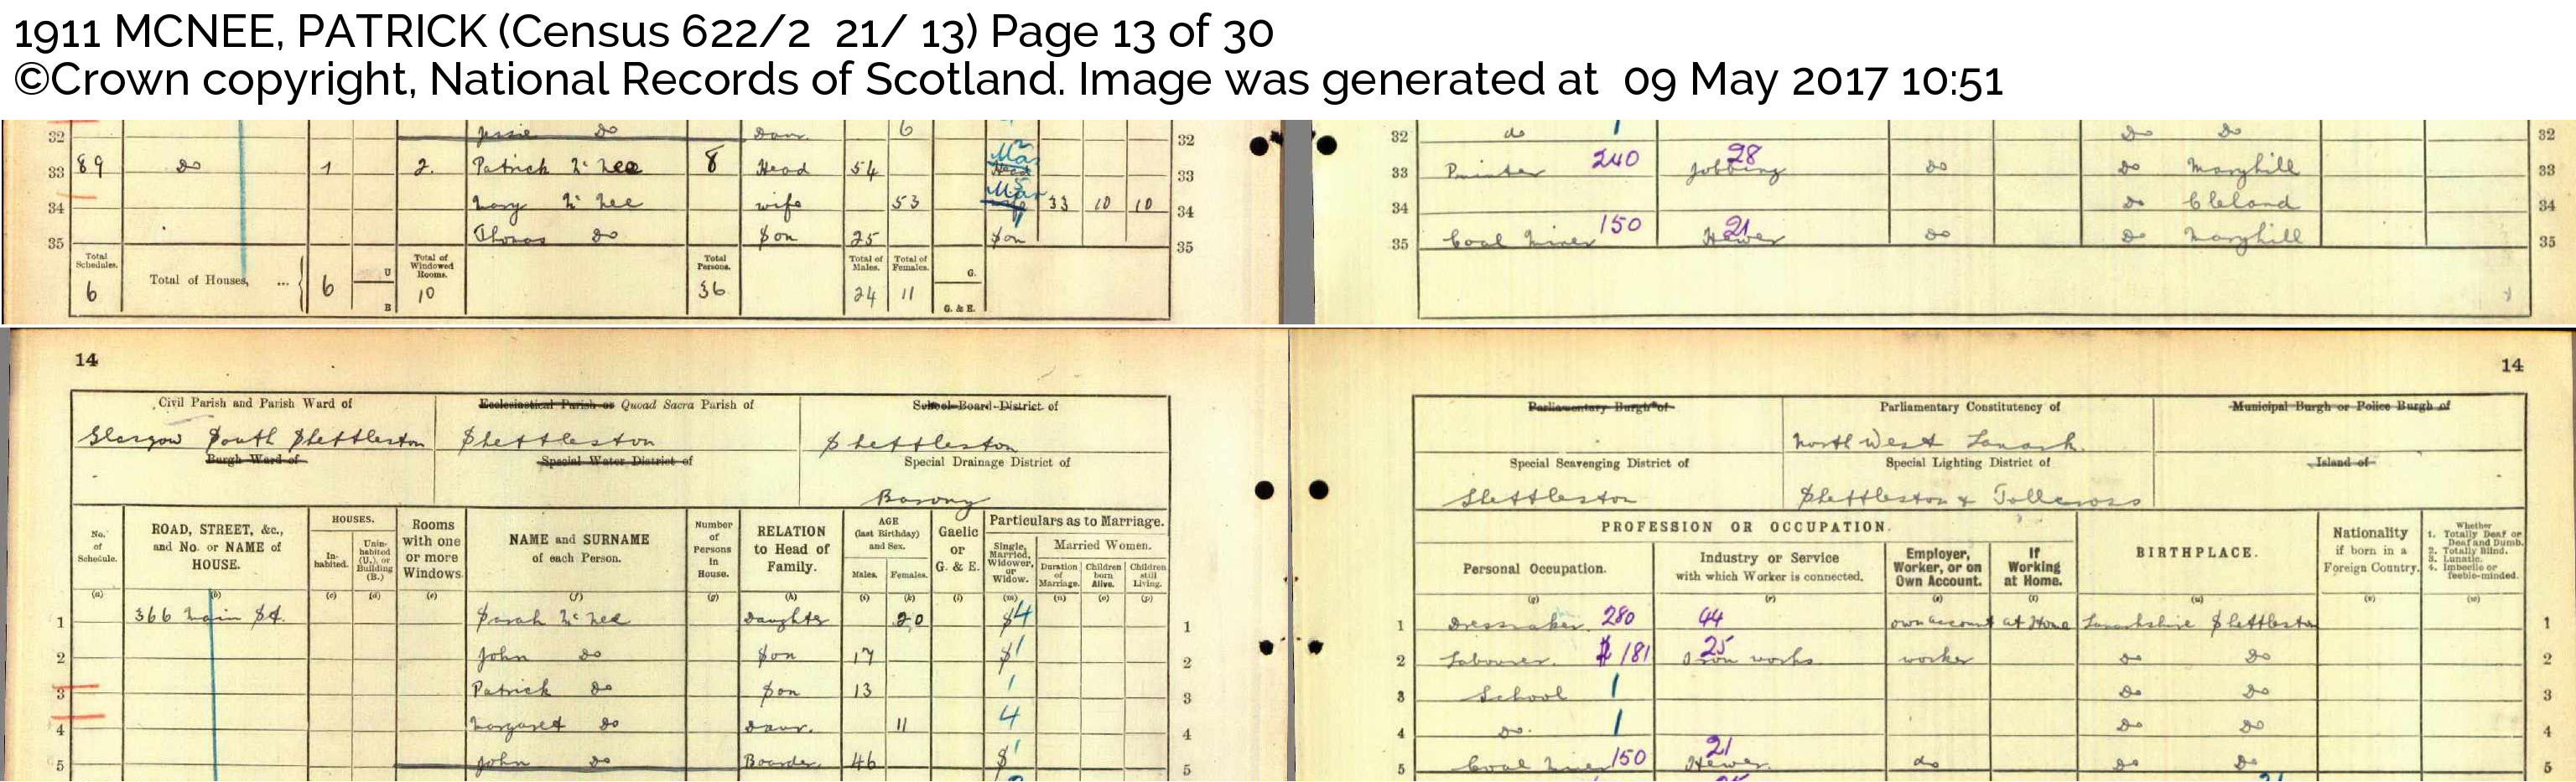 1911 MCNEE, PATRICK (Census 622/2 21/ 13) Page 13 of 30
©Crown copyright, National Records of Scotland. Image was generated at 09 May 2017 10:51
32 Jessie do Daur. 6 32 32 do 1 do do 32
33 89 do 1 2. Patrick Mc Nee 8 Head 54 Mar 33 33 240 Jobbing 28 do do Maryhill 33
34 Mary Mc Nee wife 53 Mar 33 10 10 34 34 do Cleland 34
35 Thomas do Son 25 Son 35 35 Coal Miner 150 Hewer 21 do do Maryhill 35
Total Schedules. 6 Total of Houses, ... 6 U B Total of Windowed Rooms. 10 Total Persons. 36 Total of Males. 24 Total of Females. 11 G. G. & E.
14 14
Civil Parish and Parish Ward of Ecclesiastical Parish or Quoad Sacra Parish of School Board District of Parliamentary Burgh of Parliamentary Constitutency of Municipal Burgh or Police Burgh of
Glasgow South Shettleston Shettleston Shettleston North West Lanark.
Burgh Ward of Special Water District of Special Drainage District of Special Scavenging District of Special Lighting District of Island of
Barony Shettleston Shettleston & Tollcross
No. of Schedule. ROAD, STREET, &c., and No. or NAME of HOUSE. HOUSES. In-habited. Unin-habited (U.), or Building (B.) Rooms with one or more Windows NAME and SURNAME of each Person. Number of Persons in House. RELATION to Head of Family. AGE (last Birthday) and Sex. Males. Females. Gaelic or G. & E. Particulars as to Marriage. Single, Married, Widower, or Widow. Married Women. Duration of Marriage. Children born Alive. Children still Living.
PROFESSION OR OCCUPATION. Personal Occupation. Industry or Service with which Worker is connected. Employer, Worker, or on Own Account. If Working at Home. BIRTHPLACE. Nationality if born in a Foreign Country. Whether 1. Totally Deaf or Deaf and Dumb. 2. Totally Blind. 3. Lunatic. 4. Imbecile or feeble-minded.
(a) (b) (c) (d) (e) (f) (g) (h) (i) (k) (l) (m) (n) (o) (p) (q) (r) (s) (t) (u) (v) (w)
1 366 Main St. Sarah Mc Nee Daughter 20 S 4 1 1 Dressmaker 280 44 own account at Home Lanarkshire Shettleston 1
2 John do Son 17 S 1 2 2 Labourer. 181 Iron works 25 worker do do 2
3 Patrick do Son 13 1 3 3 School 1 do do 3
4 Margaret do Daur. 11 4 4 4 do. 1 do do 4
5 John do Boarder 46 S 1 5 5 Coal Miner 150 Hewer. 21 do do do 5